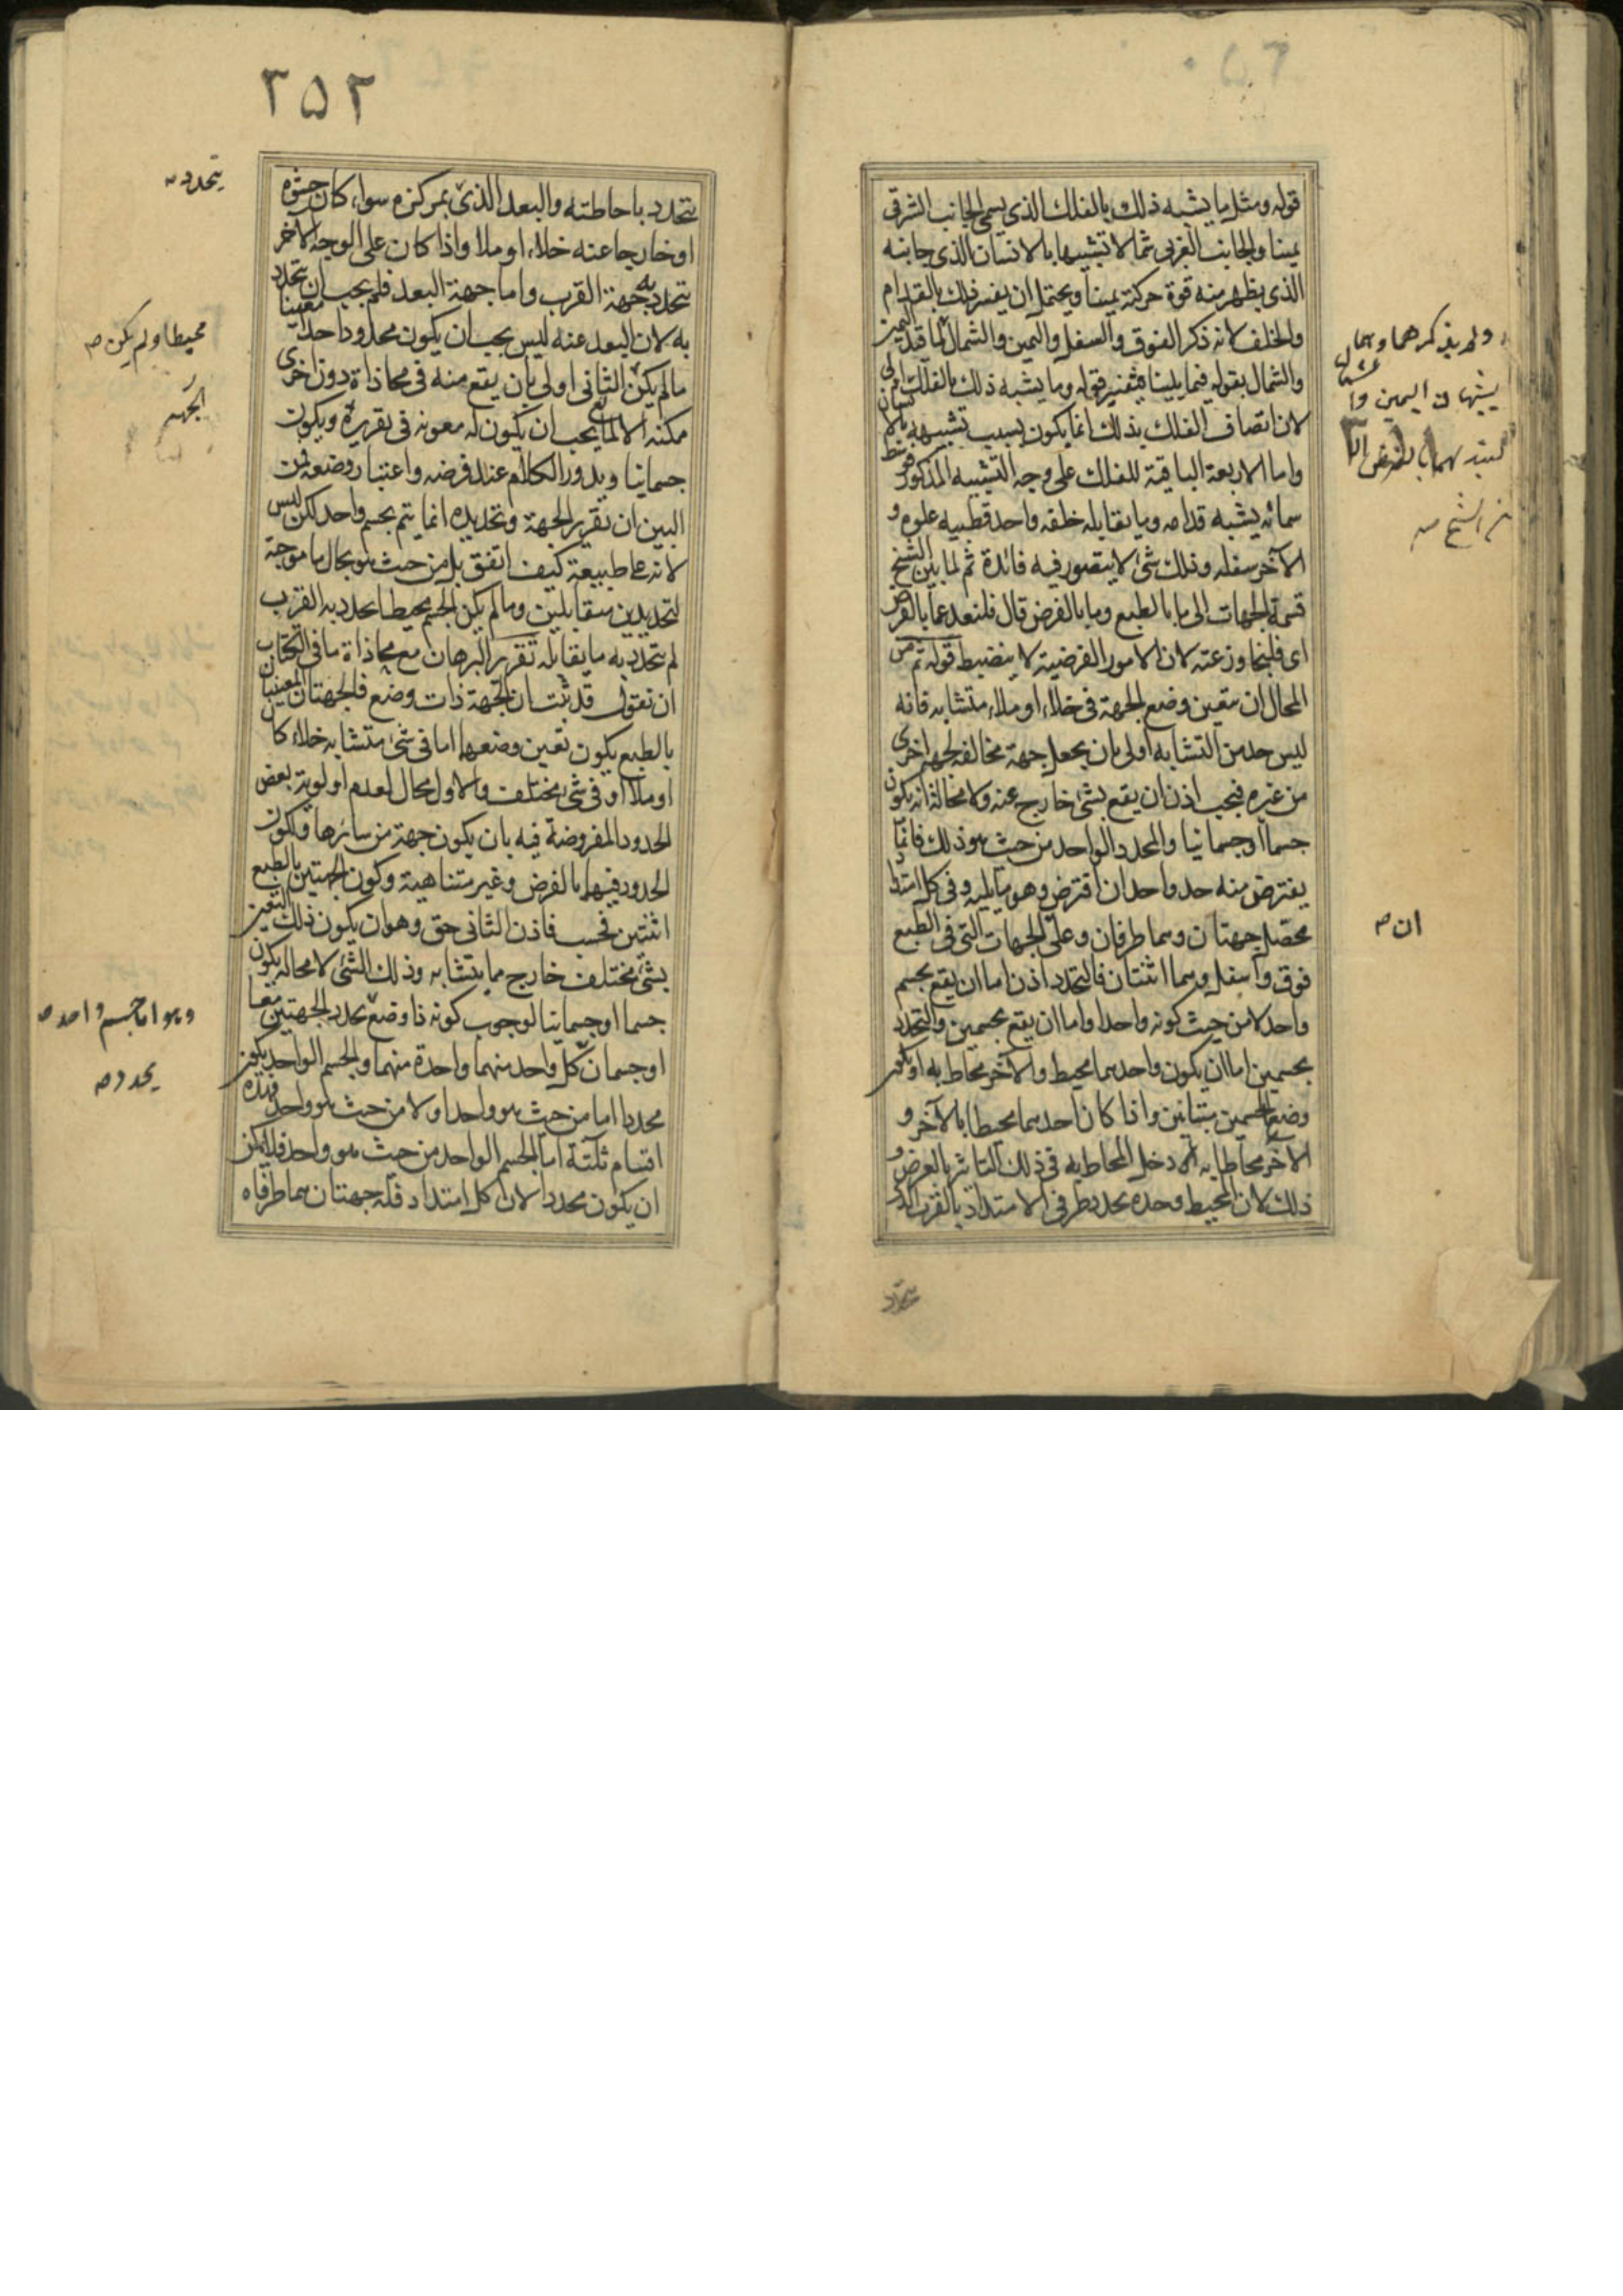 قوله ومثل ما يشبه ذلك بالفلك الذي يسمى الجانب الشرقي
يمينا والجانب الغربي شمالا تشبيها بالانسان الذي جانبه
الذي يظهر منه قوة حركته يمينا ويحتمل ان يفسر ذلك بالقدام
والخلف لانه ذكر الفوق والسفل واليمين والشمال
والشمال بقوله فيما يلينا وما يشبه ذلك بالفلك
لان اتصاف الفلك بذلك انما يكون بسبب تشبيهه
واما الاربعة الباقية للفلك على وجه التشبيه المذكور
سمائه يشبه قدامه وما يقابله خلفه واحد قطبيه علوه و
الآخر سفله وذلك شئ لا يتصور فيه فائدة ثم لما بين الشيخ
قسمة الجهات الى ما بالطبع وما بالفرض قال فلنعد عما بالفرض
اى فلنجاوز عنه لان الامور الفرضية لا ينضبط قوله ثم من
المحال ان يتعين وضع الجهة فى خلاء او ملاء متشابه فانه
ليس حد من التشابه اولى بان يجعل جهة مخالفة لجهة اخرى
من غيره فيجب اذن ان يقع بشئ خارج عنه ولا محالة انه يكون
جسما او جسمانيا والمحدد الواحد من حيث هو ذلك فانما
يفترض منه حد واحد ان افترض وهو ما يليه وفى كل امتداد
محصل جهتان وهما طرفان وعلى الجهات التى فى الطبع
فوق واسفل وهما اثنتان فالتحدد اذن اما ان يقع بجسم
واحد لا من حيث كونه واحدا واما ان يقع بجسمين والتحدد
بجسمين اما ان يكون واحدهما محيط والآخر محاط به او يكون
وضع الجسمين متباينين واذا كان احدهما محيطا بالآخر و
الآخر محاطا به دخل المحاط به فى ذلك التاثير بالعرض و
ذلك لان المحيط وحده يحدد طرفى الامتداد بالقرب الذى
يتحدد
ولم يذكرهما وهما
ان ص
٣٥٢
يتحدد باحاطته والبعد الذى بمركزه سواء كان حشوه
او خارجا عنه خلاء او ملاء واذا كان على الوجه الآخر
يتحدد به جهة القرب واما جهة البعد فلم يجب ان يتحدد
به لان البعد عنه ليس يجب ان يكون محدودا حدا معينا
ما لم يكن الثانى اولى بان يقع منه فى محاذاة دون اخرى
ممكنة الا لمانع يجب ان يكون له معونة فى تقريره ويكون
جسمانيا ويدور الكلام عند فرضه واعتبار وضعه فمن
البين ان تقرير الجهة وتحديده انما يتم بجسم واحد لكن ليس
لانه على طبيعة كيف اتفق بل من حيث هو بحال ما موجبة
لتحديدين متقابلين وما لم يكن الجسم محيطا تحدد به القرب
لم يتحدد به ما يقابله تقرير البرهان مع محاذاة ما فى الكتاب
ان نقول قد ثبت ان الجهة ذات وضع فالجهتان المعينتان
بالطبع يكون تعين وضعها اما فى شئ متشابه خلاء كان
او ملاء او فى شئ مختلف والاول محال لعدم اولوية بعض
الحدود المفروضة فيه بان يكون جهة من سائرها ولكون
الحدود فيها بالفرض وغير متناهية وكون الجهتين بالطبع
اثنتين فحسب فاذن الثانى حق وهو ان يكون ذلك التعين
بشئ مختلف خارج مما يتشابه وذلك الشئ لا محالة يكون
جسما او جسمانيا لوجوب كونه ذا وضع يحدد الجهتين معا
او جسمان كل واحد منهما واحدة منهما والجسم الواحد يكون
محددا اما من حيث هو واحد او لا من حيث هو واحد فهذه
اقسام ثلثة اما الجسم الواحد من حيث هو واحد فلا يمكن
ان يكون محددا لان كل امتداد فله جهتان هما طرفاه
يتحدد ص
محيطا ولم يكن ص
الجهة
وهو اما جسم واحد ص
يحدد ص